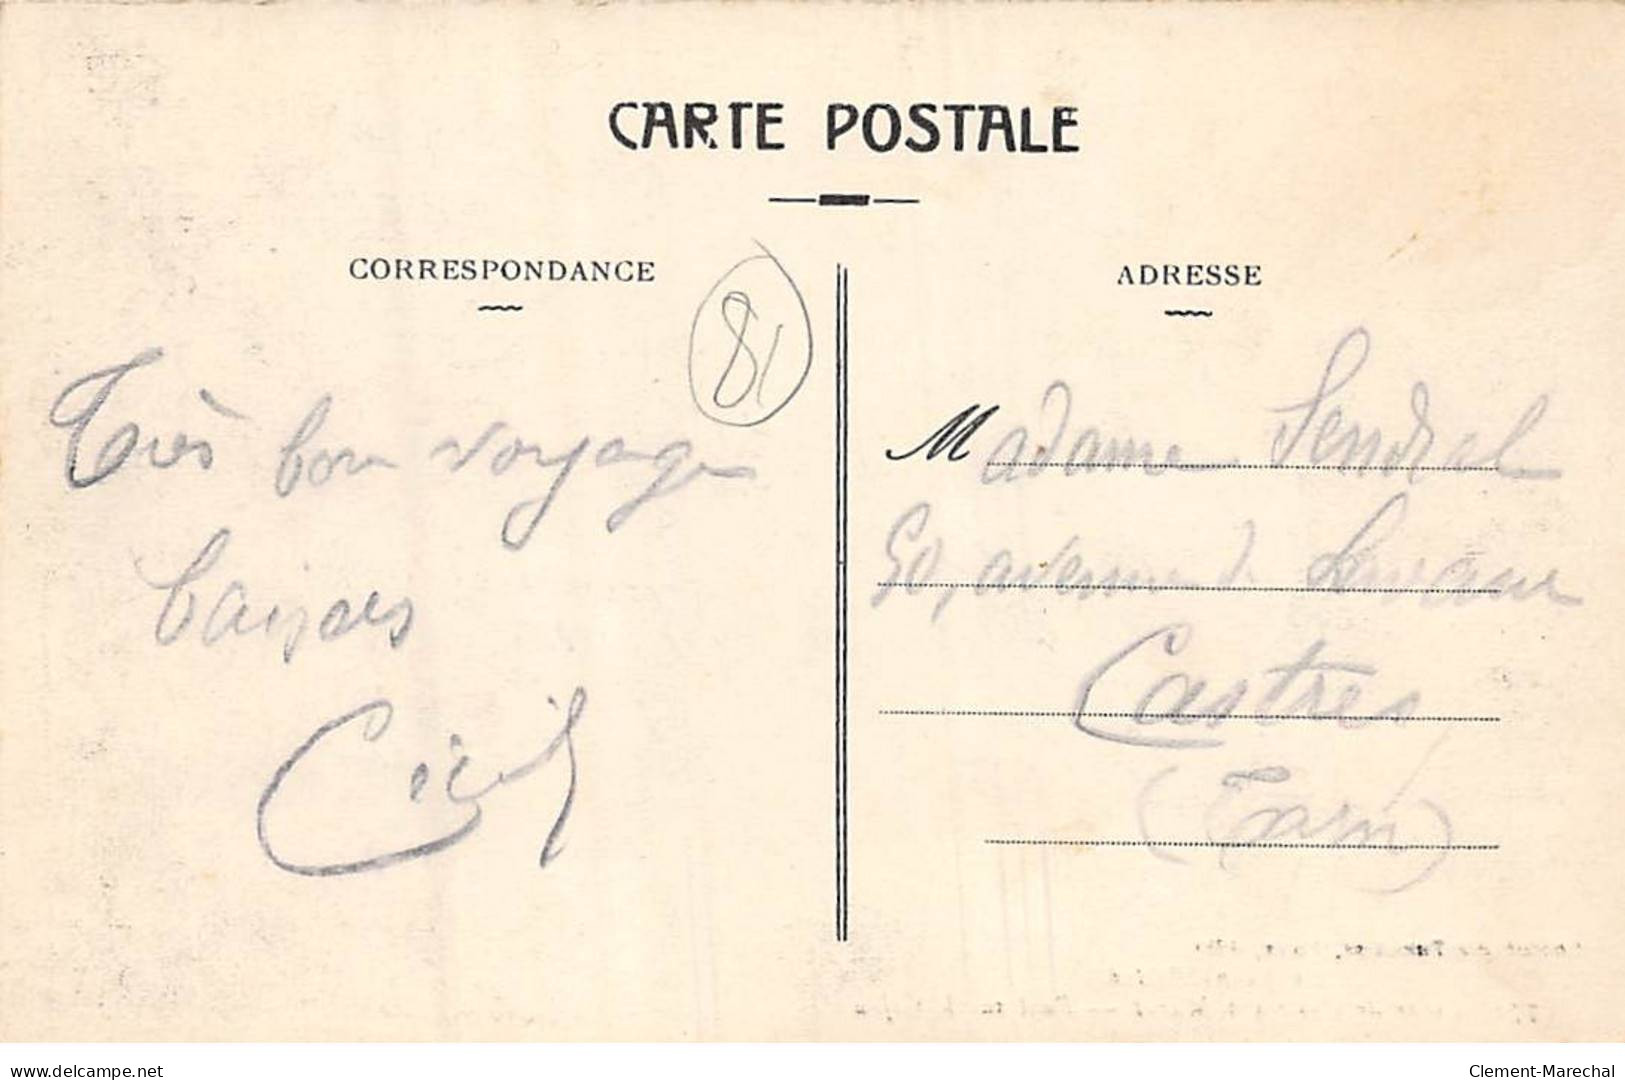 CARTE POSTALE
CORRESPONDANCE
81
Très bon voyage
baisers
Cécile
ADRESSE
Madame Sendral
50, avenue de Lavaur
Castres
(Tarn)
www.delcampe.net
Clement-Marechal